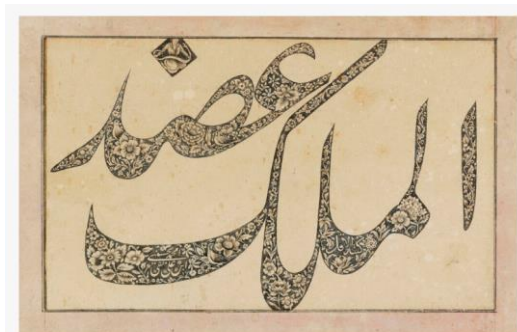 عضد
الملک